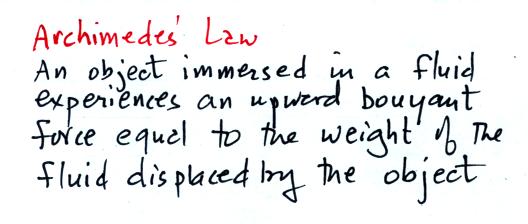 Archimedes' Law
An object immersed in a fluid
experiences an upward bouyant
force equal to the weight of The
fluid displaced by the object